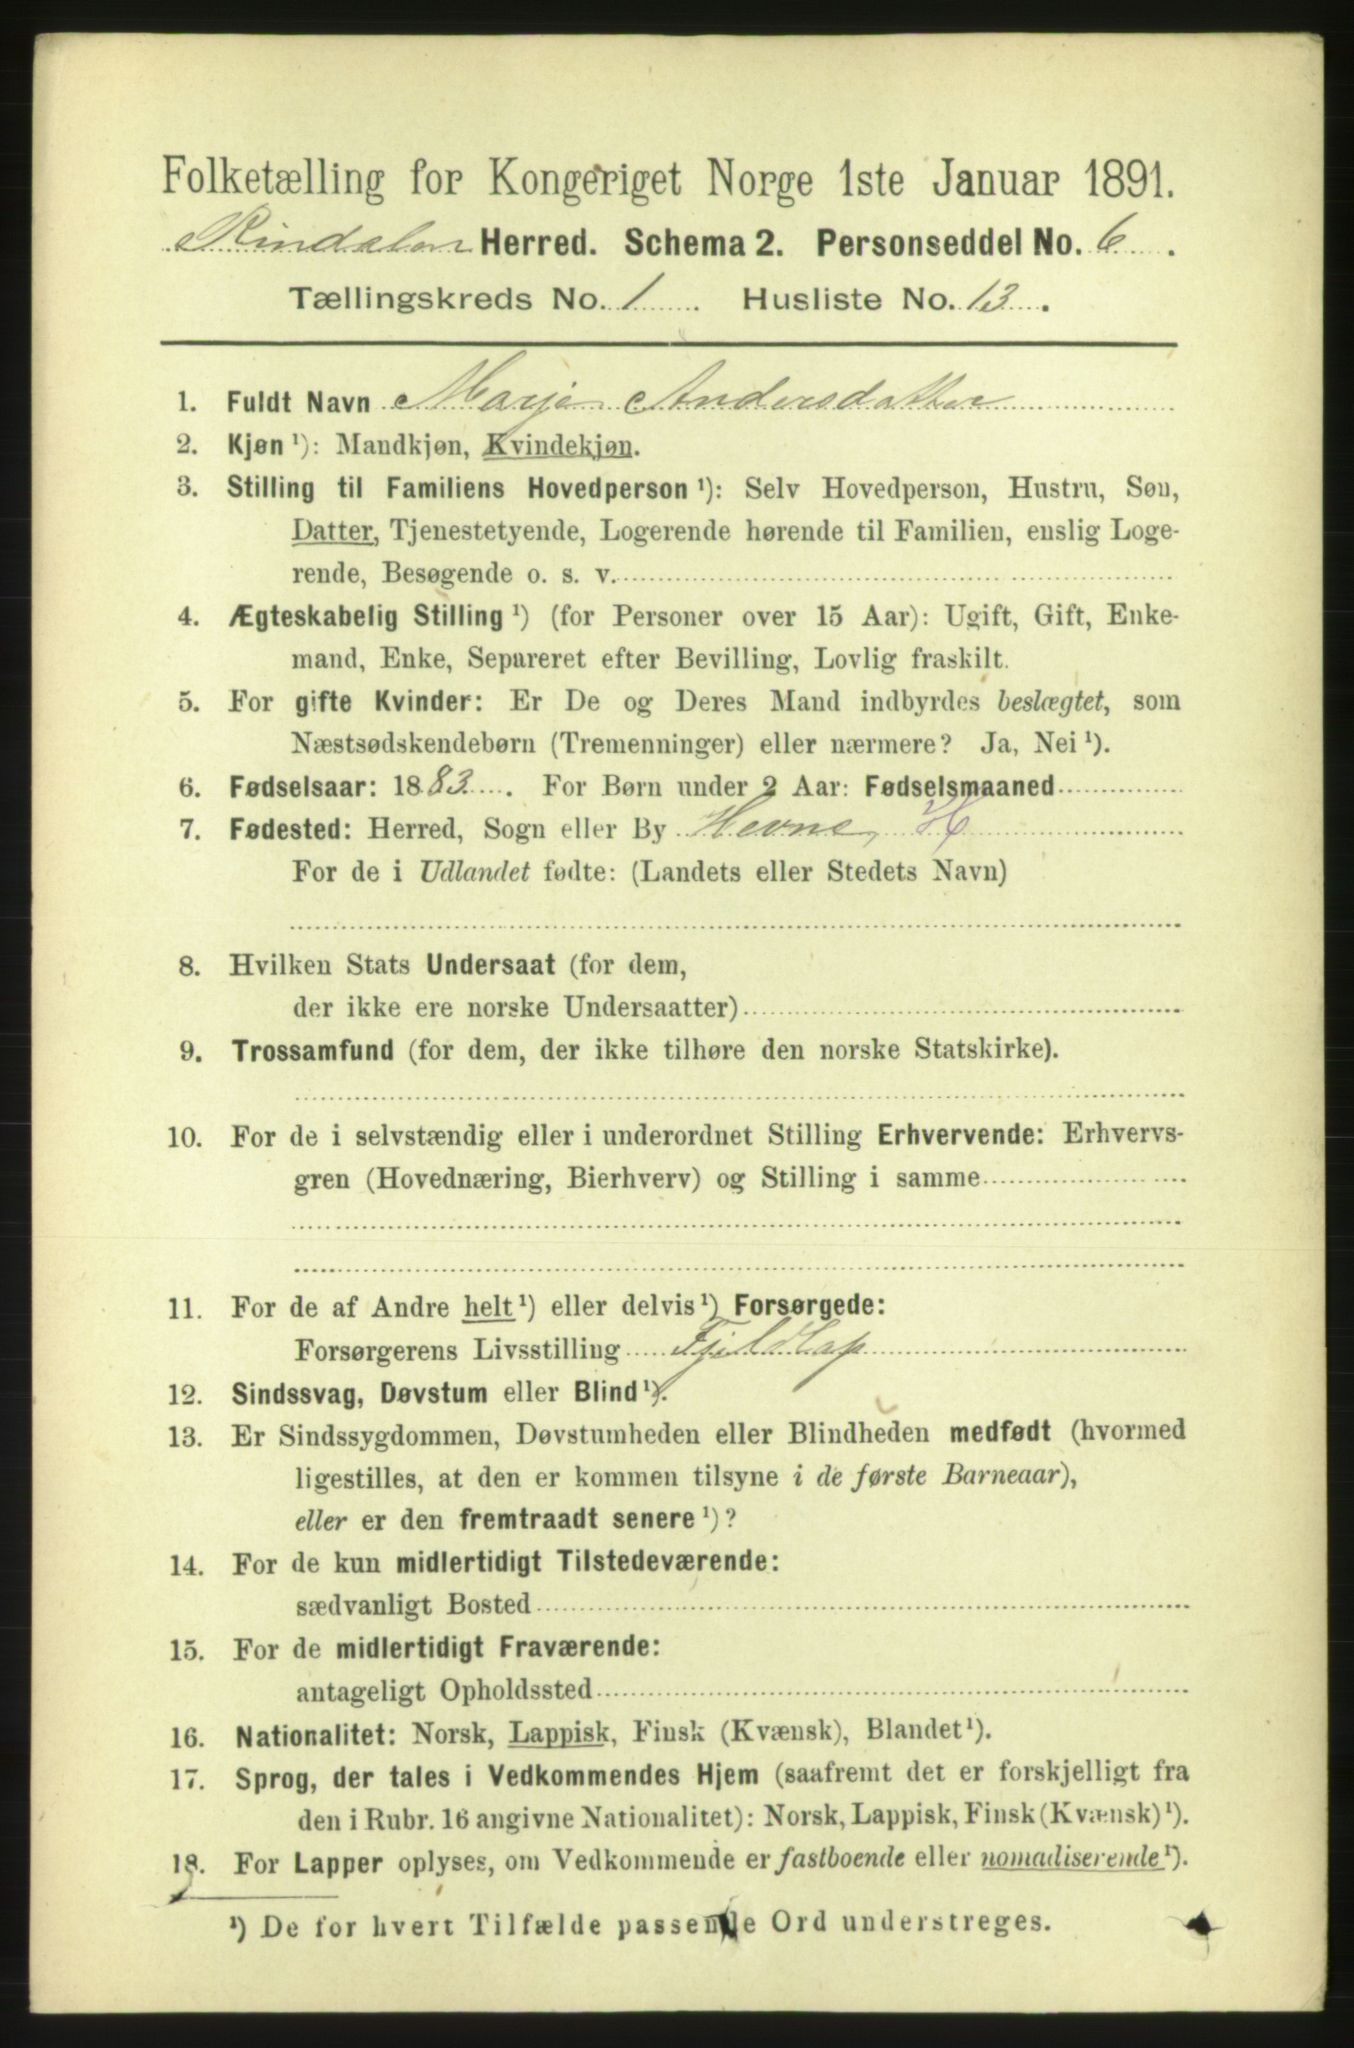 Folketælling for Kongeriget Norge 1ste Januar 1891.
Rindalen Herred. Schema 2. Personseddel No. 6.
Tællingskreds No. 1. Husliste No. 13.
1. Fuldt Navn Marja Andersdatter
2. Kjøn ¹): Mandkjøn, Kvindekjøn.
3. Stilling til Familiens Hovedperson ¹): Selv Hovedperson, Hustru, Søn,
Datter, Tjenestetyende, Logerende hørende til Familien, enslig Loge-
rende, Besøgende o. s. v.
4. Ægteskabelig Stilling ¹) (for Personer over 15 Aar): Ugift, Gift, Enke-
mand, Enke, Separeret efter Bevilling, Lovlig fraskilt.
5. For gifte Kvinder: Er De og Deres Mand indbyrdes beslægtet, som
Næstsødskendebørn (Tremenninger) eller nærmere? Ja, Nei ¹).
6. Fødselsaar: 1883. For Børn under 2 Aar: Fødselsmaaned
7. Fødested: Herred, Sogn eller By Hevne, H
For de i Udlandet fødte: (Landets eller Stedets Navn)
8. Hvilken Stats Undersaat (for dem,
der ikke ere norske Undersaatter)
9. Trossamfund (for dem, der ikke tilhøre den norske Statskirke).
10. For de i selvstændig eller i underordnet Stilling Erhvervende: Erhvervs-
gren (Hovednæring, Bierhverv) og Stilling i samme
11. For de af Andre helt ¹) eller delvis ¹) Forsørgede:
Forsørgerens Livsstilling Fjeldlap
12. Sindssvag, Døvstum eller Blind ¹).
13. Er Sindssygdommen, Døvstumheden eller Blindheden medfødt (hvormed
ligestilles, at den er kommen tilsyne i de første Barneaar),
eller er den fremtraadt senere ¹)?
14. For de kun midlertidigt Tilstedeværende:
sædvanligt Bosted
15. For de midlertidigt Fraværende:
antageligt Opholdssted
16. Nationalitet: Norsk, Lappisk, Finsk (Kvænsk), Blandet ¹).
17. Sprog, der tales i Vedkommendes Hjem (saafremt det er forskjelligt fra
den i Rubr. 16 angivne Nationalitet): Norsk, Lappisk, Finsk (Kvænsk) ¹).
18. For Lapper oplyses, om Vedkommende er fastboende eller nomadiserende ¹).
¹) De for hvert Tilfælde passende Ord understreges.